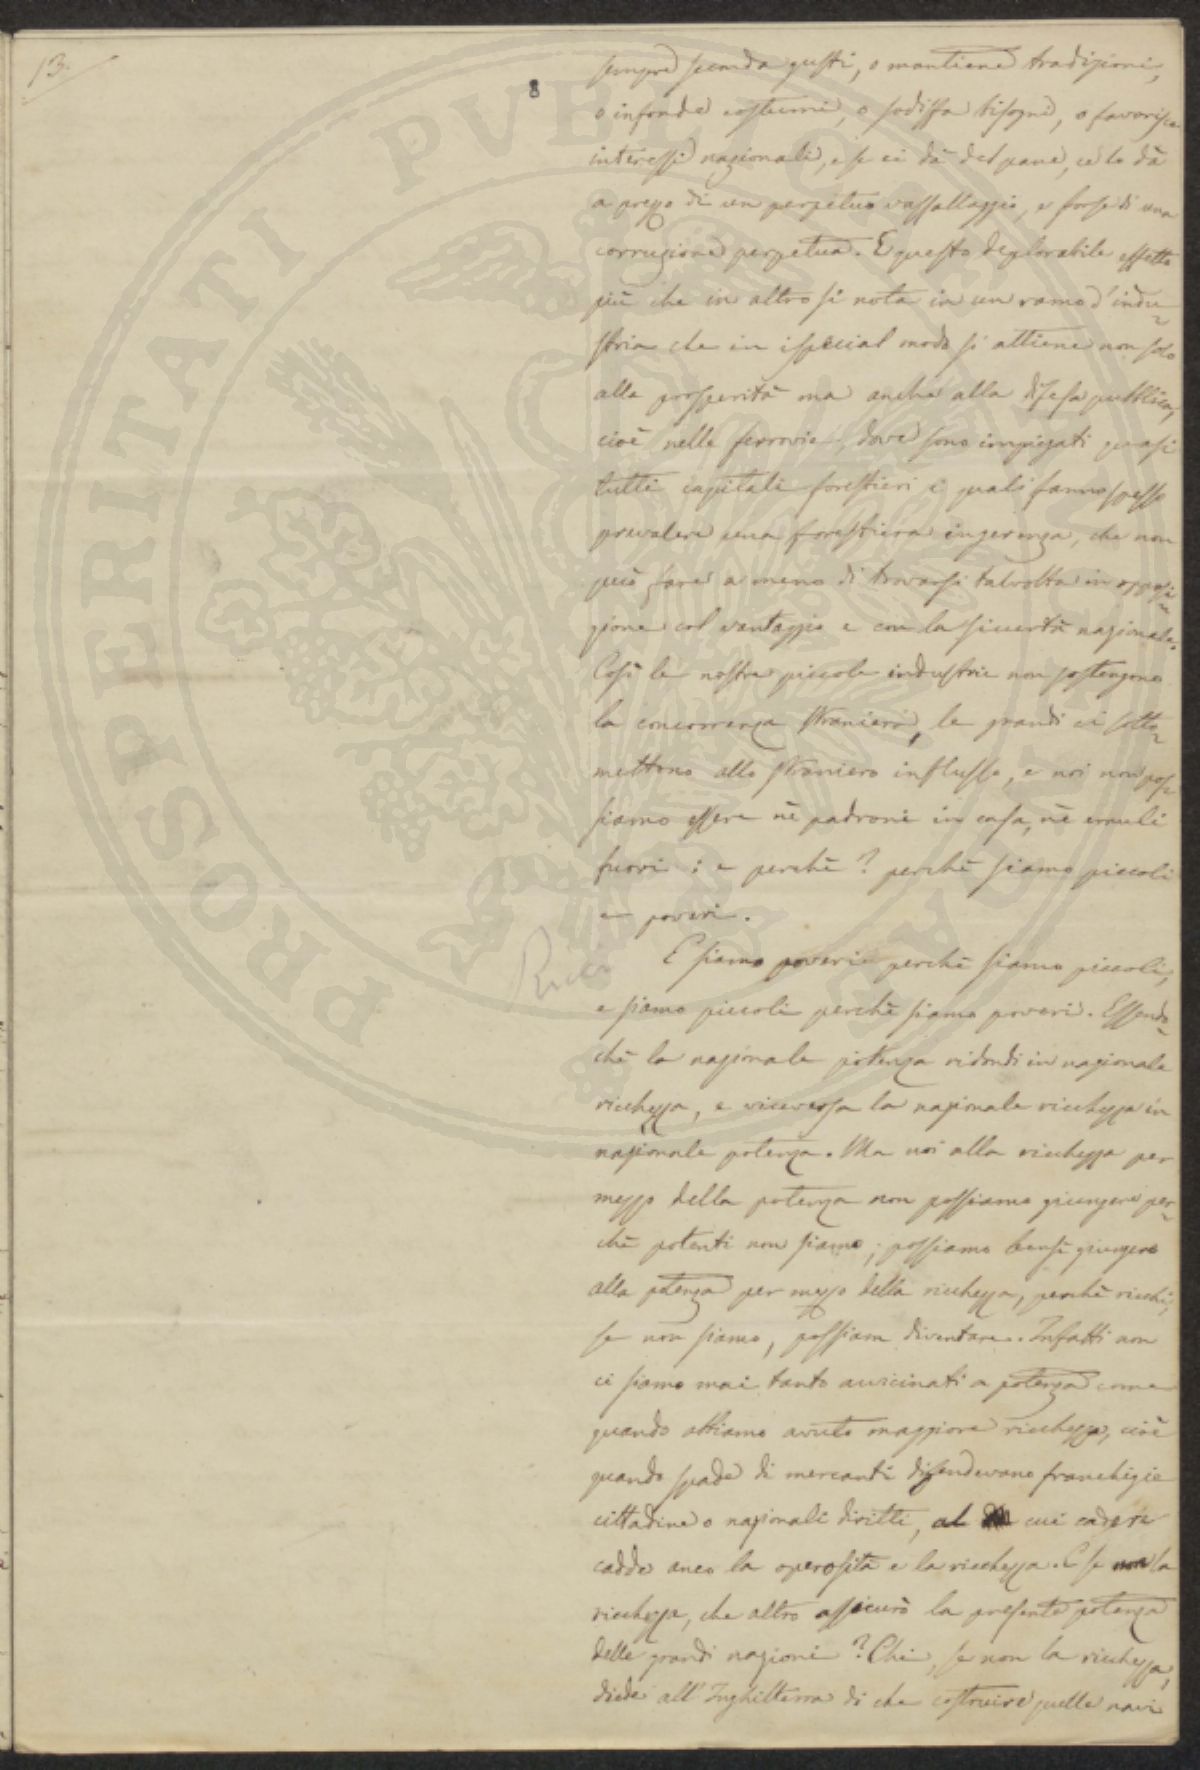 13.
8
sempre seconda gusti, o mantiene tradizioni,
o infonde costumi, o sodisfa bisogni, o favorisce
interessi nazionali, e se ci dà del pane, ce lo dà
a prezzo di un perpetuo vassallaggio, e forse di una
corruzione perpetua. E questo deplorabile effetto
più che in altro si nota in un ramo d'indu-
stria che in ispecial modo si attiene non solo
alla prosperità ma anche alla difesa pubblica,
cioè nelle ferrovie, dove sono impiegati quasi
tutti capitali forestieri i quali fanno spesso
prevalere una forestiera ingerenza, che non
può fare a meno di trovarsi talvolta in opposi-
zione col vantaggio e con la sicurtà nazionale.
Così le nostre piccole industrie non sostengono
la concorrenza straniera, le grandi ci sotto-
mettono allo straniero influsso, e noi non pos-
siamo essere nè padroni in casa, nè emuli
fuori: e perchè? perchè siamo piccoli
e poveri.
E siamo poveri perchè siamo piccoli,
e siamo piccoli perchè siamo poveri. Essendo-
chè la nazionale potenza ridondi in nazionale
ricchezza, e viceversa la nazionale ricchezza in
nazionale potenza. Ma noi alla ricchezza per
mezzo della potenza non possiamo giungere per-
chè potenti non siamo; possiamo bensì giungere
alla potenza per mezzo della ricchezza, perchè ricchi,
se non siamo, possiam diventare. Infatti non
ci siamo mai tanto avvicinati a potenza come
quando abbiamo avuto maggiore ricchezza, cioè
quando spade di mercanti difendevano franchigie
cittadine o nazionali diritti, al cui cadere
cadde anco la operosità e la ricchezza. E se non la
ricchezza, che altro assicurò la presente potenza
delle grandi nazioni? Chi, se non la ricchezza,
diede all'Inghilterra di che costruire quelle navi
PROSPERITATI PVBLICAE AVGENDAE